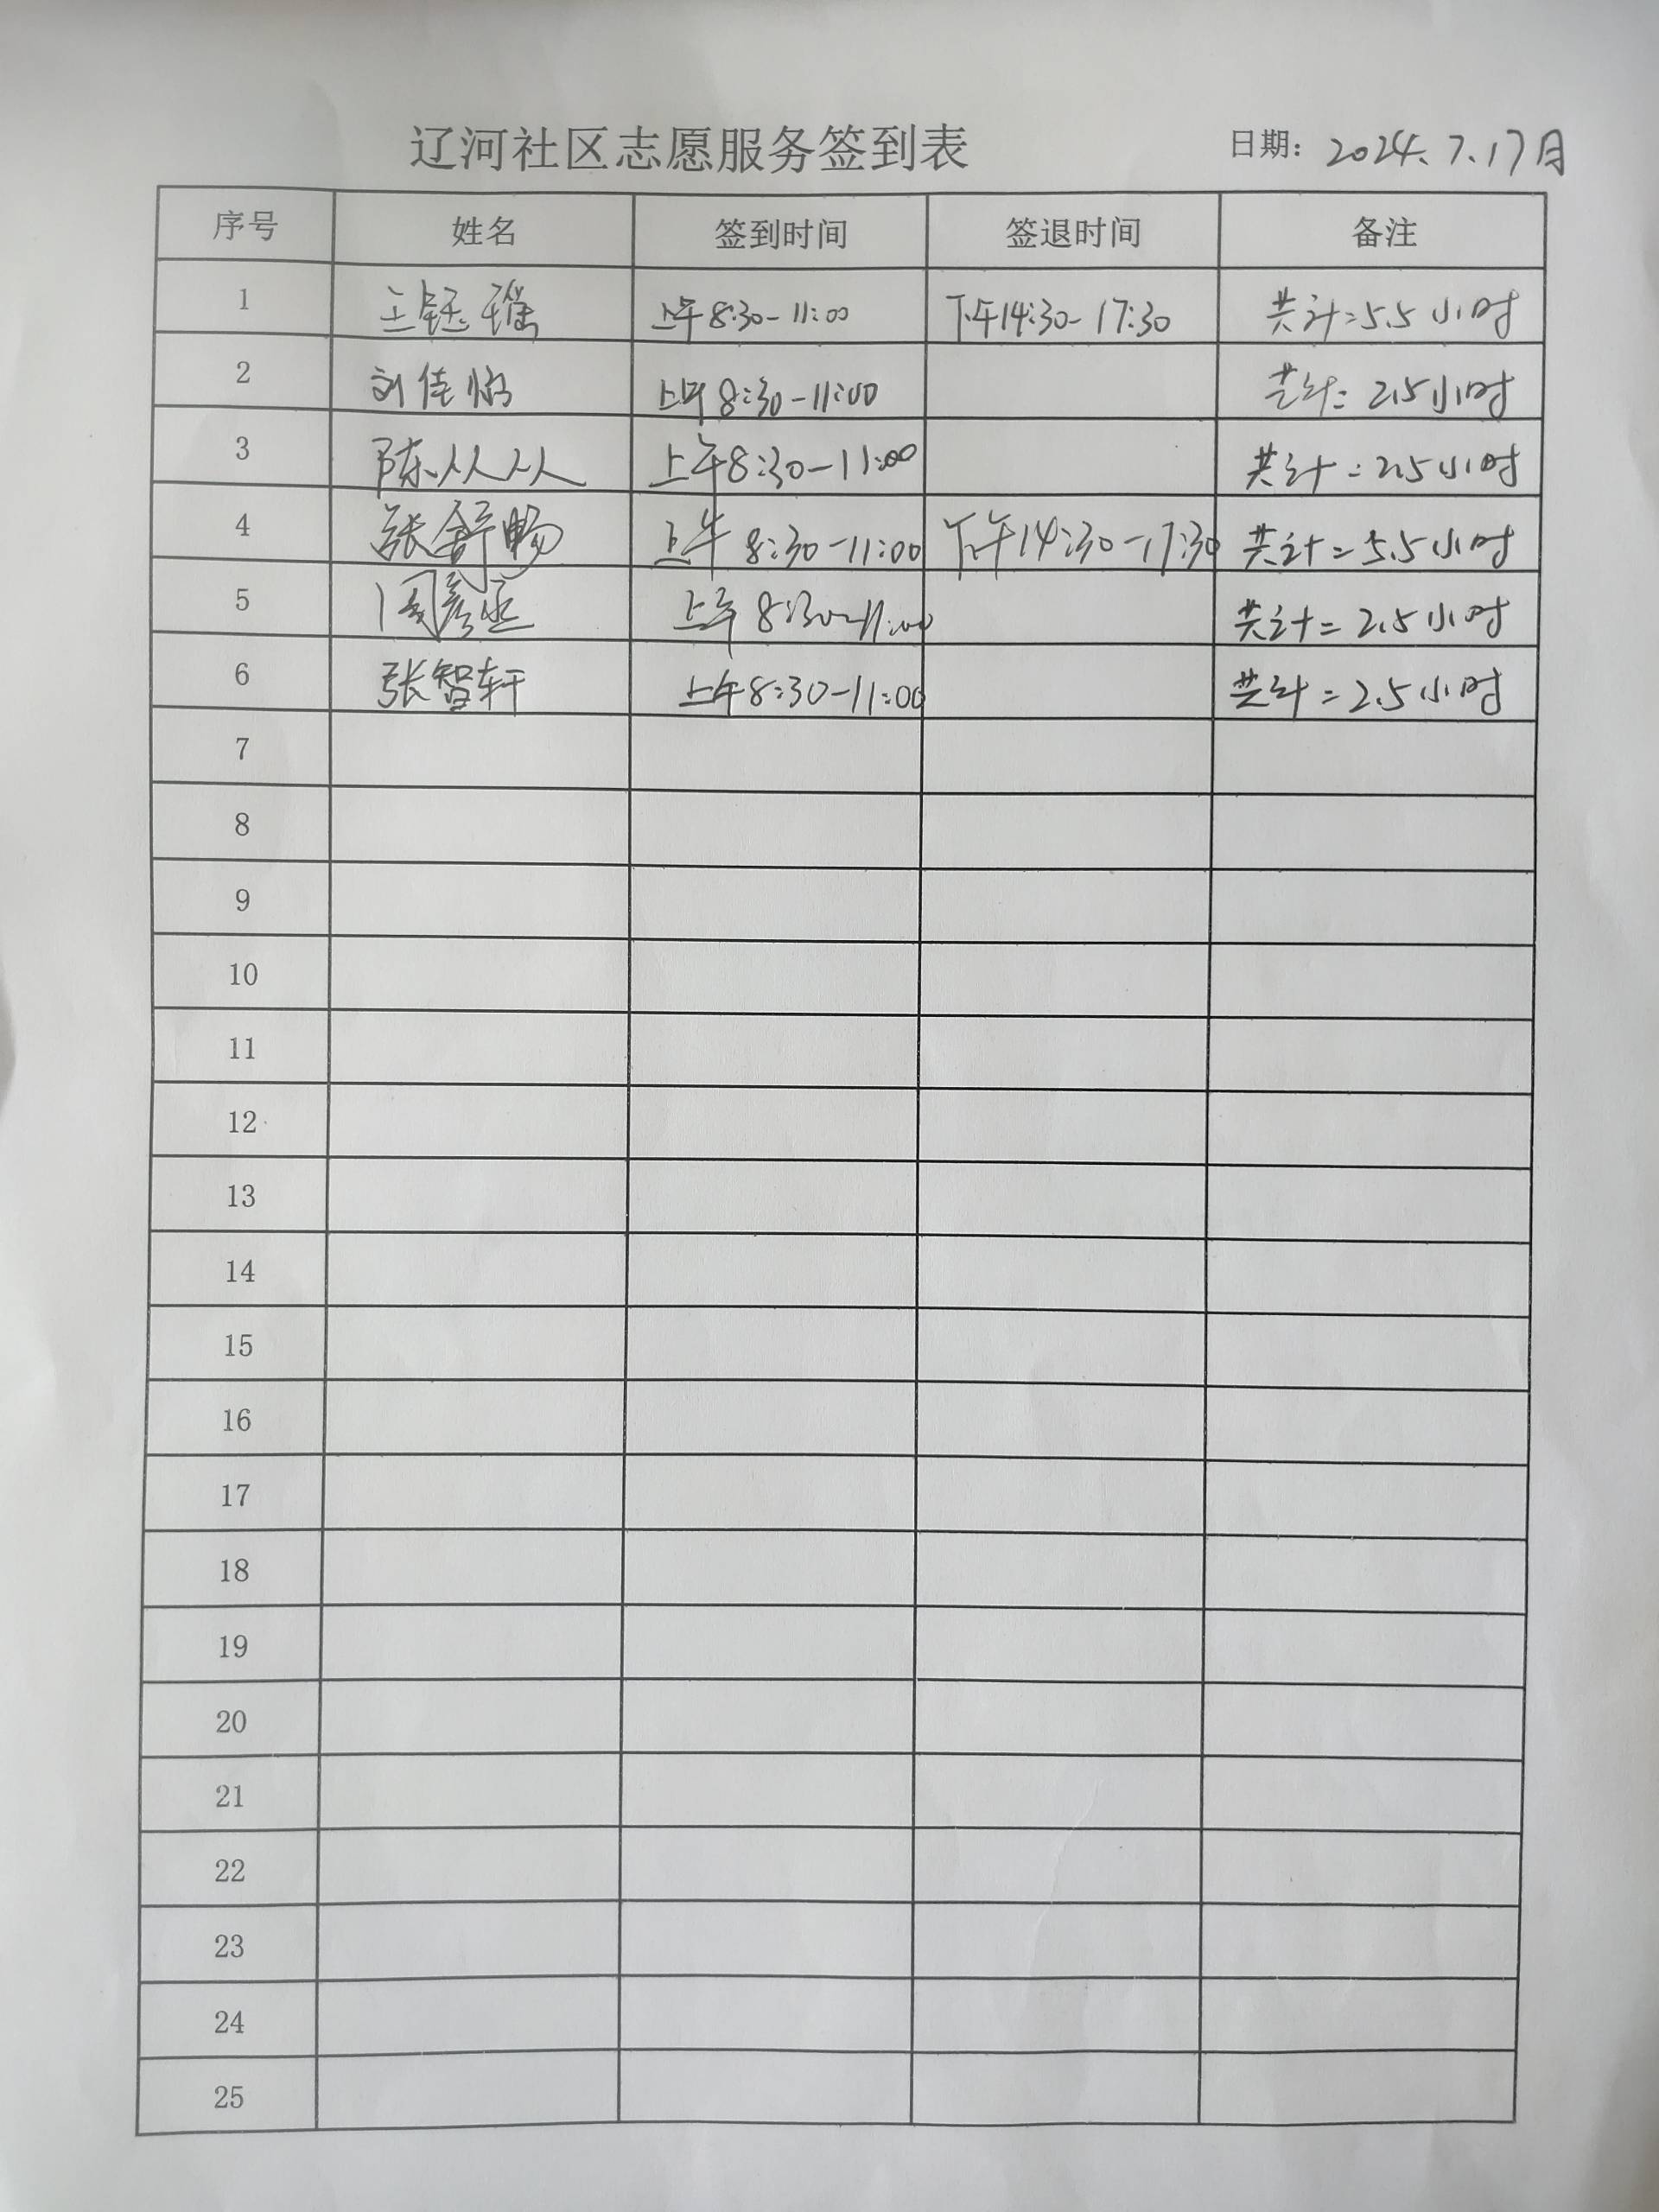 辽河社区志愿服务签到表 日期: 2024.7.17日
序号 姓名 签到时间 签退时间 备注
1 王钰瑶 上午8:30-11:00 下午14:30-17:30 共计=5.5小时
2 刘佳 上午8:30-11:00 共计=2.5小时
3 陈从从 上午8:30-11:00 共计=2.5小时
4 张舒畅 上午8:30-11:00 下午14:30-17:30 共计=5.5小时
5 周彦丞 上午8:30-11:00 共计=2.5小时
6 张智轩 上午8:30-11:00 共计=2.5小时
7
8
9
10
11
12
13
14
15
16
17
18
19
20
21
22
23
24
25